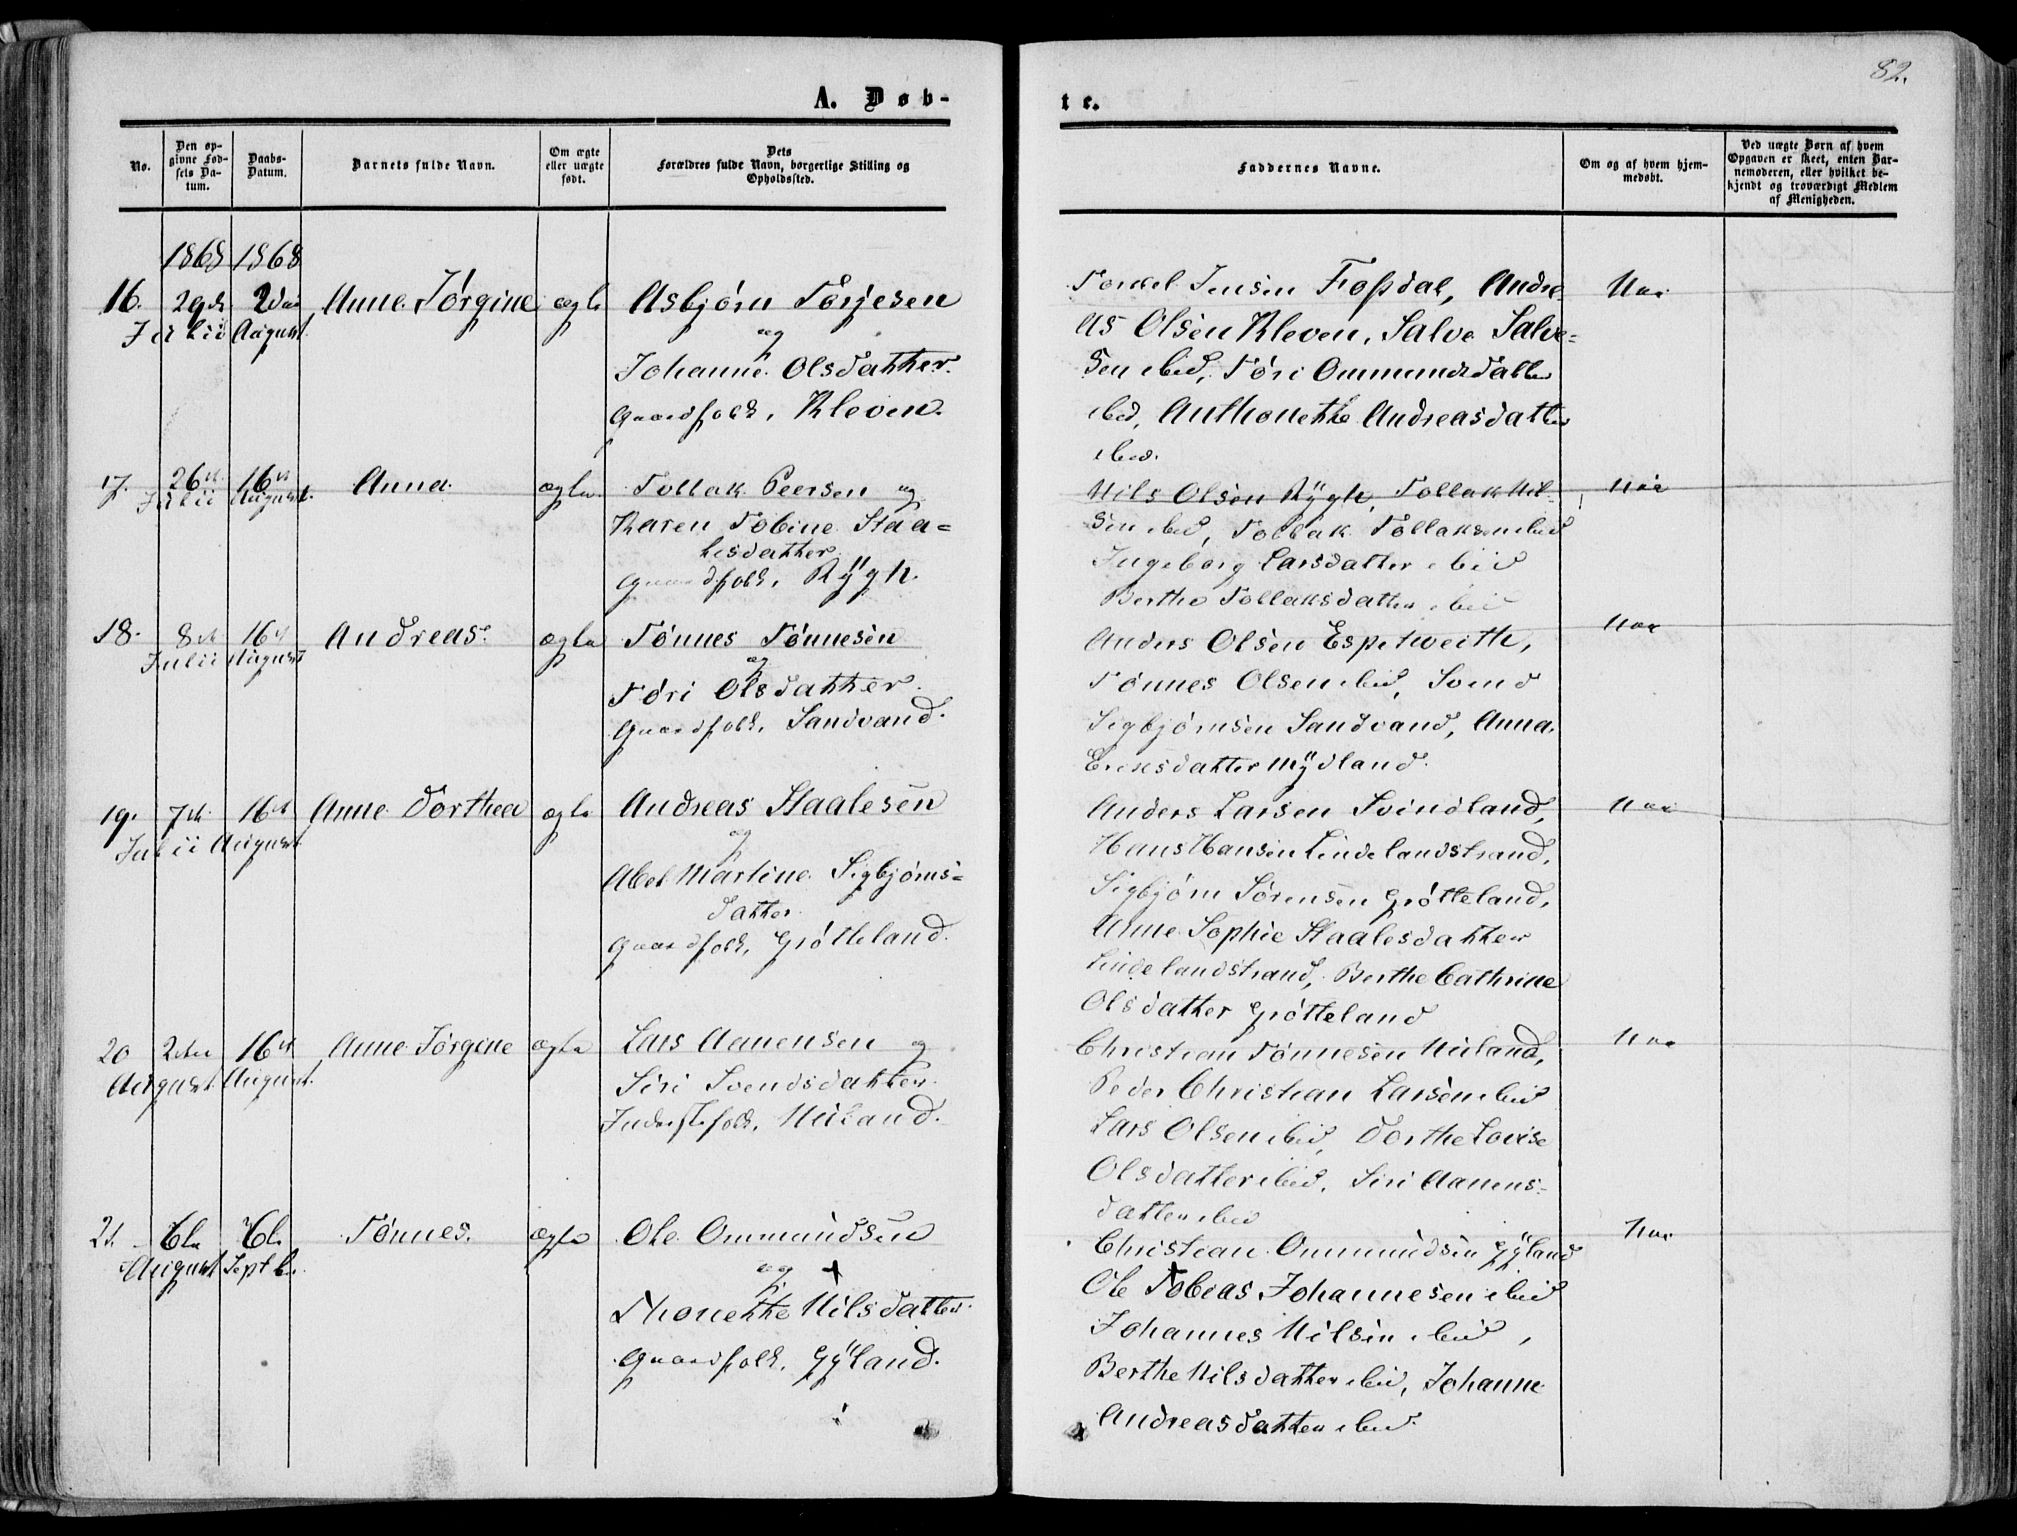 82.
A. Døb-
te.
No.
Den op-
givne Fød-
sels Da-
tum.
Daabs-
Datum.
Barnets fulde Navn.
Om ægte
eller uægte
født.
Dets
Forældres fulde Navn, borgerlige Stilling og
Opholdssted.
Faddernes Navne.
Om og af hvem hjem-
medøbt.
Ved uægte Børn af hvem
Opgaven er skeet, enten Bar-
nemoderen, eller hvilket be-
kjendt og troværdigt Medlem
af Menigheden.
1868 1868
16. 29de 2den Anne Jørgine ægte Asbjørn Torjesen
Julii August og
Johanne Olsdatter
Gaardfolk, Kleven.
Torkel Jensen Fossdal, Andre-
as Olsen Kleven, Salve Salve-
sen ibid, Tøri Ommundsdatter
ibid, Anthonette Andreasdatter
ibid.
17. 26de 16de Anna. ægte Tollak Peersen og
Julii August. Karen Tobine Staa-
lesdatter
Gaardfolk, Rÿgh.
Nils Olsen Rÿgh, Tollak Nil-
sen ibid, Tollak Tollaksen ibid
Ingeborg Larsdatter ibid
Berthe Tollaksdatter ibid
18. 8de 16de Andreas. ægte Tønnes Tønnesen
Julii August og
Tøri Olsdatter
Gaardfolk, Sandvand.
Anders Olsen Espetveith,
Tønnes Olsen ibid, Svend
Sigbjørnsen Sandvand, Anna
Ericksdatter Mÿdland.
19. 7de 16de Anne Dorthea ægte Andreas Staalesen
Julii August og
Abel Martine Sigbjørns-
datter
Gaardfolk, Grötteland.
Anders Larsen Svindland,
Hans Hansen Lindelandstrand,
Sigbjørn Sørensen Grötteland,
Anne Sophie Staalesdatter
Lindelandstrand, Berthe Cathrine
Olsdatter Grötteland
20 2den 16de Anne Jørgine ægte Lars Aanensen og
August August. Siri Svendsdatter
Inderstfolk, Nuland.
Christian Tønnesen Nuland,
Peder Christian Larsen ibid
Lars Olsen ibid, Dorthe Lovise
Olsdatter ibid, Siri Aanens-
datter ibid
21. 6te 6te Tønnes. ægte Ole Ommundsen
August Septbr. og
Thonette Nilsdatter
Gaardfolk, Gÿland.
Christian Ommundsen Gÿland
Ole Tobias Johannesen ibid
Johannes Nilsen ibid,
Berthe Nilsdatter ibid, Johanne
Andreasdatter ibid